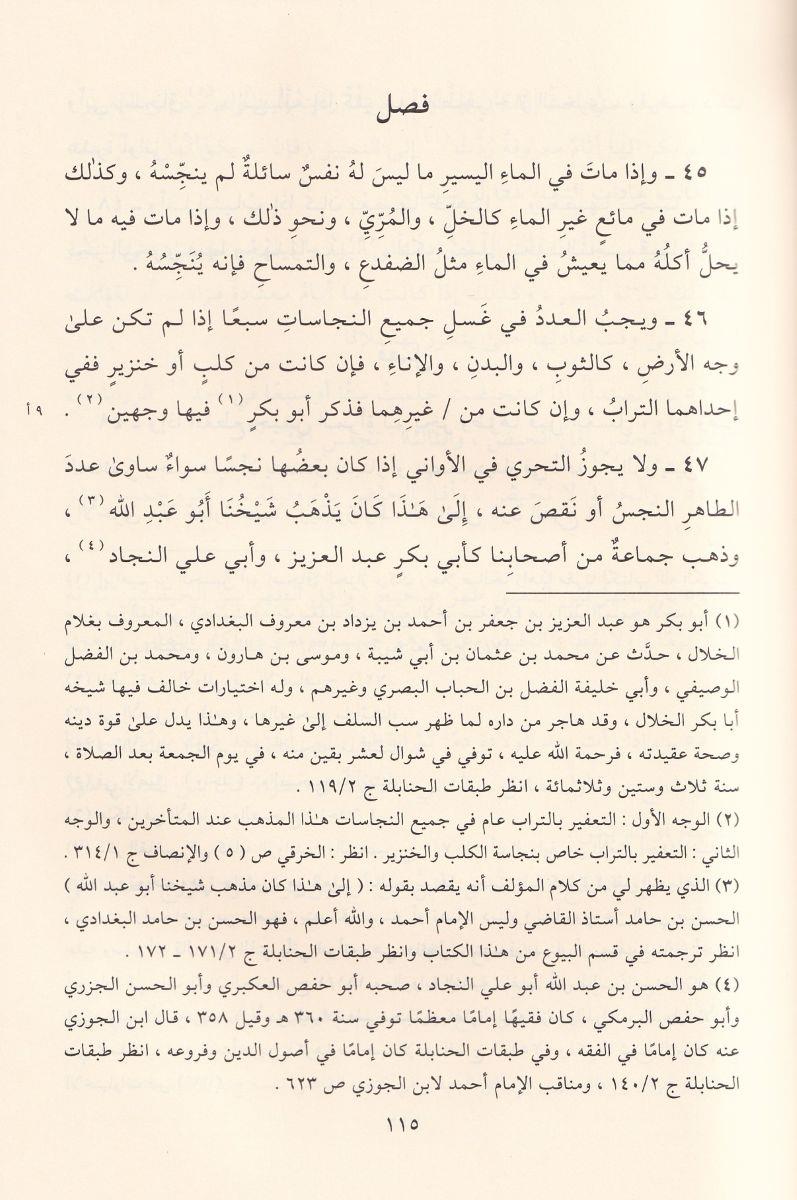 فصل
٤٥ ـ وإذا ماتَ في الماءِ اليسيرِ ما ليسَ لهُ نفسٌ سائلةٌ لم ينجِّسْهُ ، وكذٰلك
إذا مات في مائعٍ غيرِ الماءِ كالخلِّ ، والمُرِّيِّ ، ونحوِ ذٰلك ، وإذا مات فيه ما لا
يحلُّ أكلُهُ مما يعيشُ في الماءِ مثلُ الضفدعِ ، والتمساحِ فإنه يُنَجِّسُهُ .
٤٦ ـ ويجبُ العددُ في غَسلِ جميعِ النجاساتِ سبعًا إذا لم تكن علىٰ
وجه الأرضِ ، كالثوبِ ، والبدنِ ، والإناءِ ، فإن كانت من كلبٍ أو خنزيرٍ ففي
إحداهما الترابُ ، وإن كانت من / غيرِهِما فذكر أبو بكرٍ (١) فيها وجهين (٢) .
٩ أ
٤٧ ـ ولا يجوزُ التحري في الأواني إذا كان بعضُها نجسًا سواءٌ ساوىٰ عددَ
الطاهرِ النجسُ أو نَقصَ عنه ، إِلَىٰ هَـٰذَا كَانَ يَذْهَبُ شَيْخُنَا أَبُو عَبْدِ الله (٣) ،
وذهب جماعةٌ من أصحابِنا كأبي بكرٍ عبد العزيز ، وأبي علي النجاد (٤) ،
(١) أبو بكر هو عبد العزيز بن جعفر بن أحمد بن يزداد بن معروف البغدادي ، المعروف بغلام
الخلال ، حدَّث عن محمد بن عثمان بن أبي شيبة ، وموسى بن هارون ، ومحمد بن الفضل
الوصيفي ، وأبي خليفة الفضل بن الحباب البصري وغيرهم ، وله اختيارات خالف فيها شيخه
أبا بكر الخلال ، وقد هاجر من داره لما ظهر سب السلف إلىٰ غيرها ، وهـٰذا يدل علىٰ قوة دينه
وصحة عقيدته ، فرحمة الله عليه ، توفي في شوال لعشر بقين منه ، في يوم الجمعة بعد الصلاة ،
سنة ثلاث وستين وثلاثمائة ، انظر طبقات الحنابلة ج ١١٩/٢ .
(٢) الوجه الأول : التعفير بالتراب عام في جميع النجاسات هـٰذا المذهب عند المتأخرين ، والوجه
الثاني : التعفير بالتراب خاص بنجاسة الكلب والخنزير . انظر : الخرقي ص ( ٥ ) والإنصاف ج ٣١٤/١ .
(٣) الذي يظهر لي من كلام المؤلف أنه يقصد بقوله : ( إلىٰ هـٰذا كان مذهب شيخنا أبو عبد الله )
الحسن بن حامد أستاذ القاضي وليس الإمام أحمد ، والله أعلم ، فهو الحسن بن حامد البغدادي ،
انظر ترجمته في قسم البيوع من هـٰذا الكتاب وانظر طبقات الحنابلة ج ١٧١/٢ ـ ١٧٢ .
(٤) هو الحسن بن عبد الله أبو علي النجاد ، صحبه أبو حفص العكبري وأبو الحسن الجزري
وأبو حفص البرمكي ، كان فقيهًا إمامًا معظمًا توفي سنة ٣٦٠ هـ وقيل ٣٥٨ ، قال ابن الجوزي
عنه كان إمامًا في الفقه ، وفي طبقات الحنابلة كان إمامًا في أصول الدين وفروعه ، انظر طبقات
الحنابلة ج ١٤٠/٢ ، ومناقب الإمام أحمد لابن الجوزي ص ٦٢٣ .
١١٥